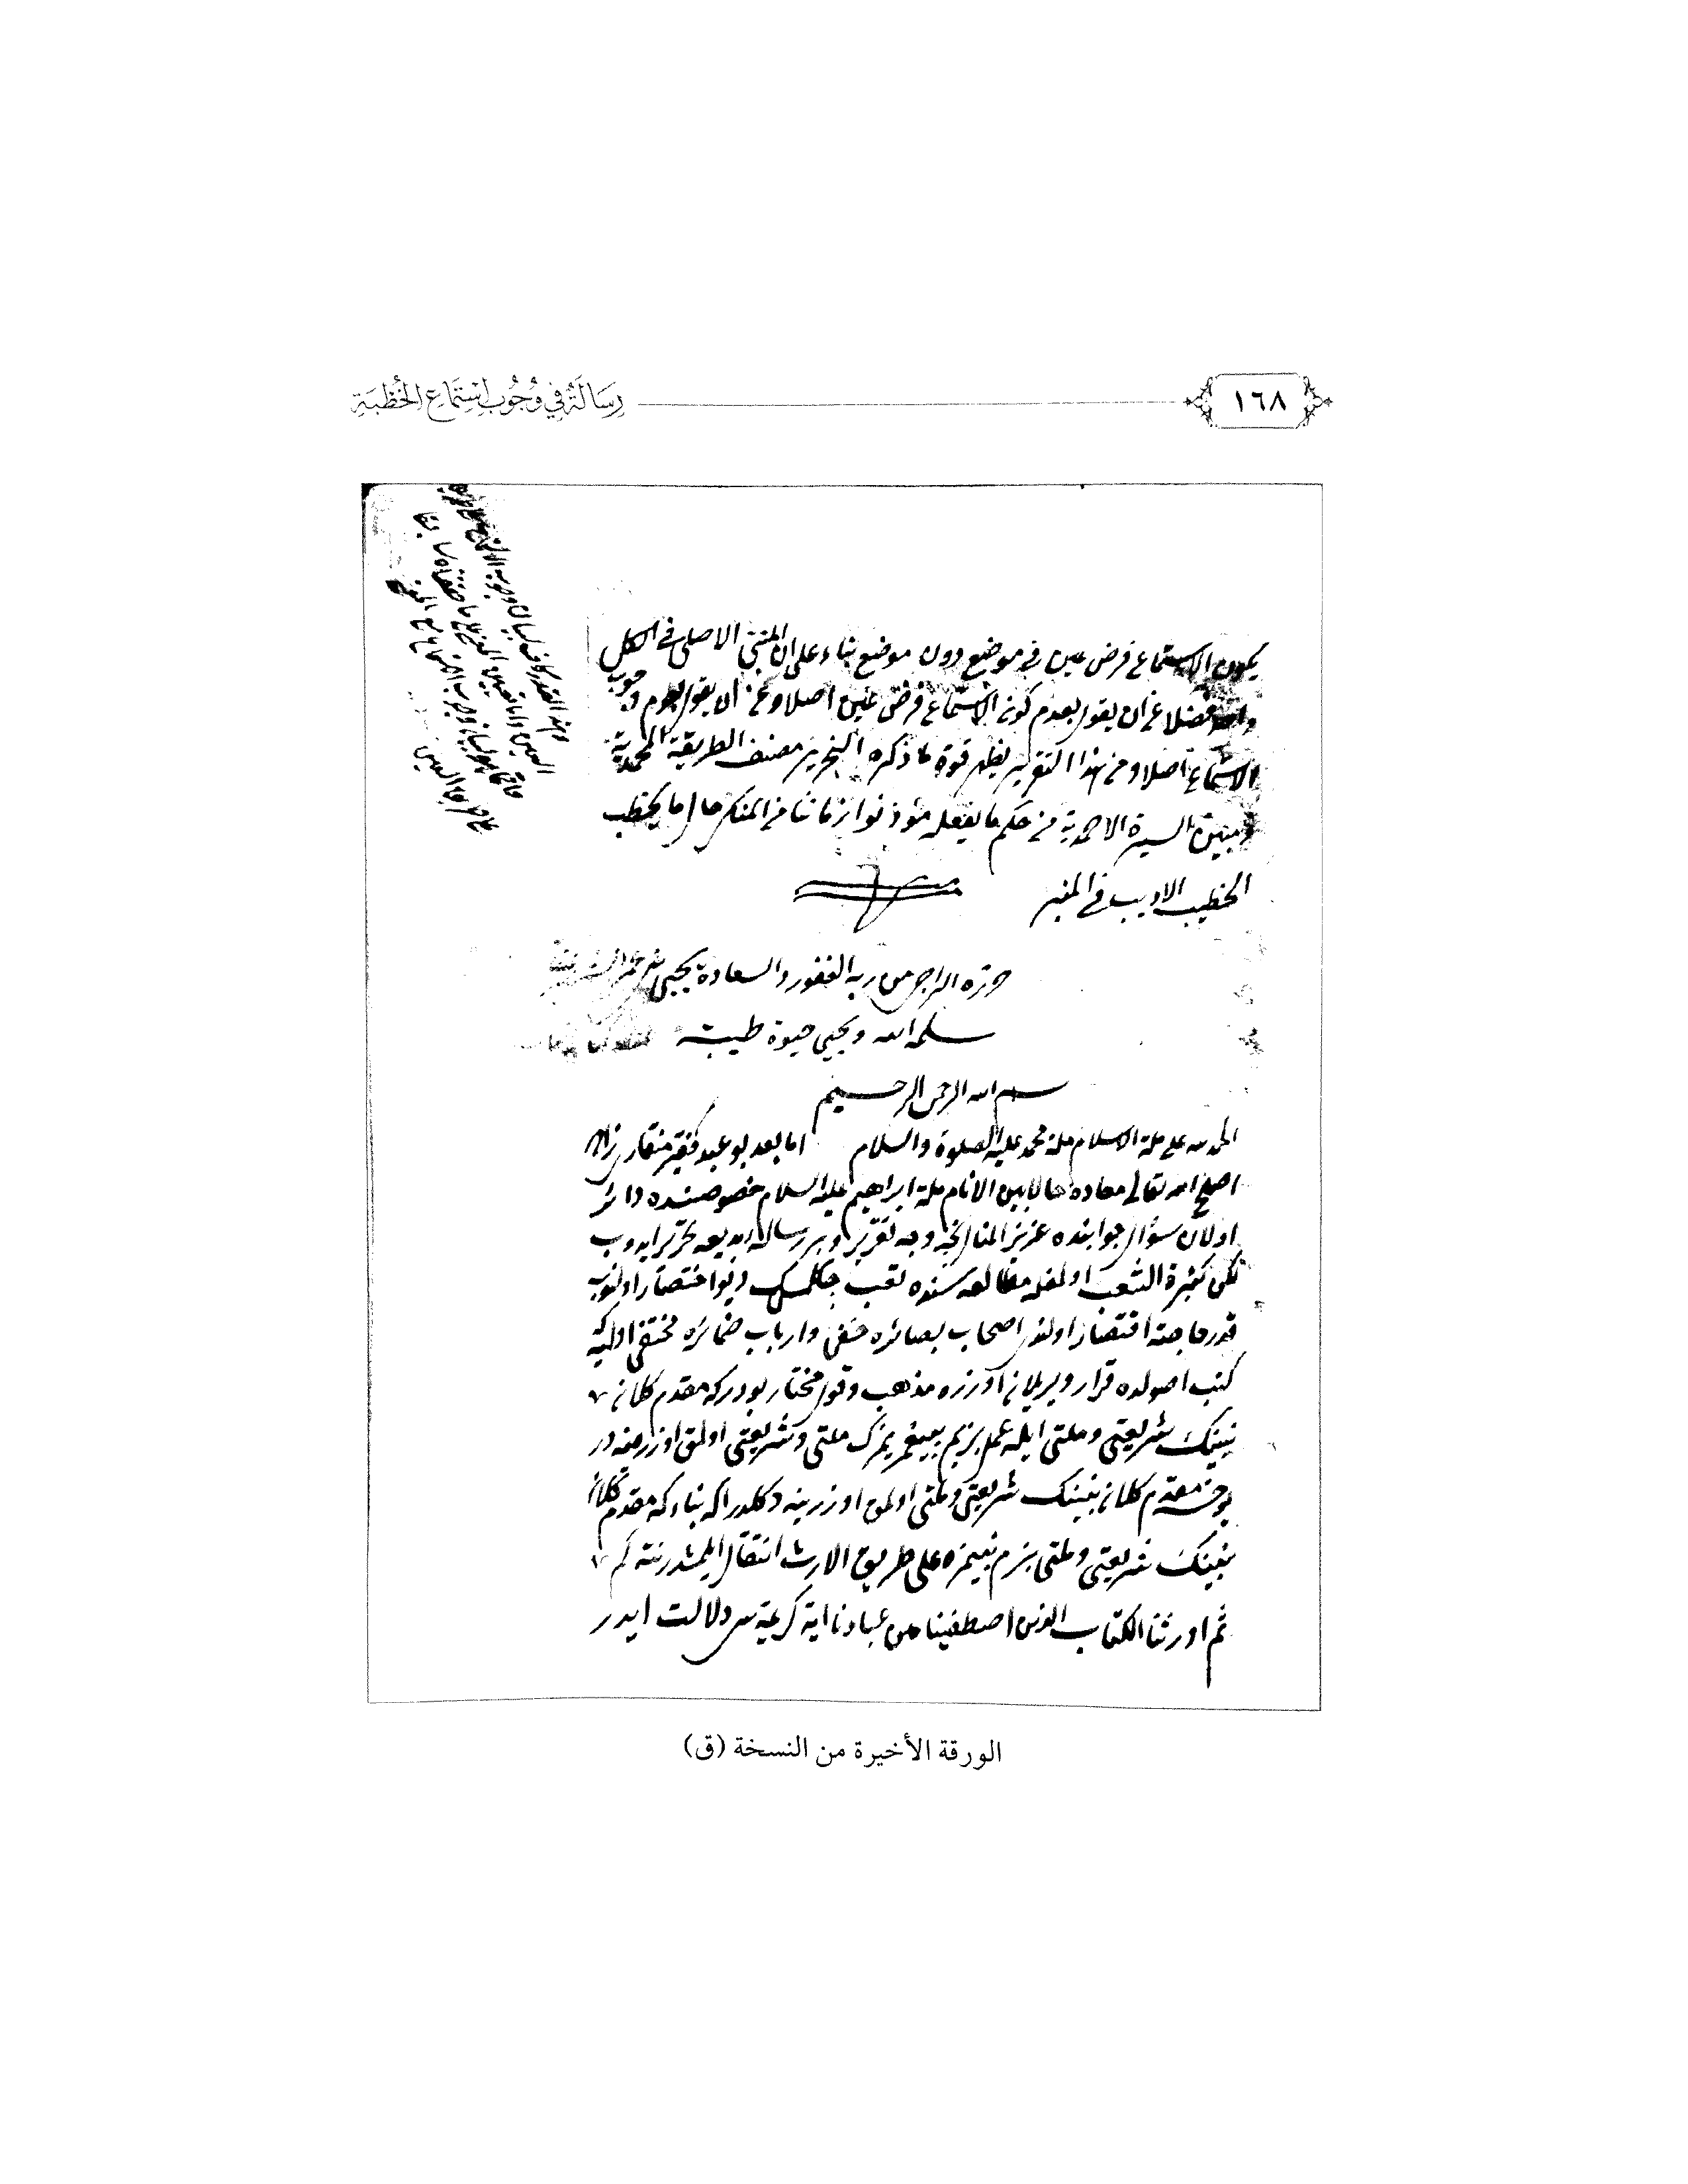 ١٦٨
رِسَالَةٌ فِي وُجُوبِ اسْتِمَاعِ الْخُطْبَةِ
يكون الاستماع فرض عين في موضع دون موضع بناء على ان المبنى الاصلي في الكل
واحد فضلا عن ان يقول بعدم كونه الاستماع فرض عين اصلا وعن ان يقول بعدم وجوب
الاستماع اصلا ومن هذا التقرير يظهر قوة ما ذكره النحرير مصنف الطريقة المحمدية
ومبين السيرة الاحمدية من حكم ما يفعله مؤذنوا زماننا من المنكر حال ما يخطب
الخطيب الاديب في المنبر
حرره الراجي من ربه الغفور والسعادة يحيى
سلمه الله ويحيى حيوة طيبة
بسم الله الرحمن الرحيم
الحمد لله على ملة الاسلام ملة محمد عليه الصلوة والسلام اما بعد بو عبد فقير منقاري زاده
اصلح الله تعالى معاده حالا بين الانام ملة ابراهيم عليه السلام خصوصنده دائر
اولان سؤال جوابنده عزيز المنال نجه وجه تقرير و بر رساله بديعه تحرير ايدوب
لكن كثيرة الشعب اولمغله مطالعه سنده تعب چكلمسك ديو اختصار اولنوب
قدر حاجته اقتصار اولنور اصحاب بصائره خفي وارباب ضمائره مختفي اولميه كه
كتب اصولده قرار ويريلان اوزره مذهب وقول مختار بودركه مقدم كلان
نبينك شريعتي وملتي ايله عمل بزم پيغمبريمزك ملتي وشريعتي اولمق اوزرينه در
يوخسه مقدم كلان نبينك شريعتي وملتي اولمق اوزرينه دكلدر اكا بناء كه مقدم كلان
نبينك شريعتي وملتي بزم نبيمزه على طريق الارث انتقال ايلمشدر نته كم
ثم اورثنا الكتاب الذين اصطفينا من عبادنا اية كريمه سي دلالت ايدر
الورقة الأخيرة من النسخة (ق)